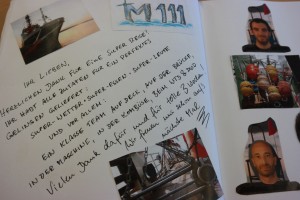 TM 111
IHR LIEBEN,
HERZLICHEN DANK FÜR EINE SUPER REISE!
IHR HABT ALLE ZUTATEN FÜR EIN PERFEKTES
GELINGEN GELIEFERT:
SUPER-WETTER-SUPER-ESSEN-SUPER-LEUTE
UND IHR ALLEN:
EIN KLASSE TEAM AUF DECK, AUF DER BRÜCKE,
IN DER MASCHINE, IN DER KOMBÜSE, BEIM
Vielen Dank dafür und für tolle 3
Wir freuen uns schon auf's
nächste Mal